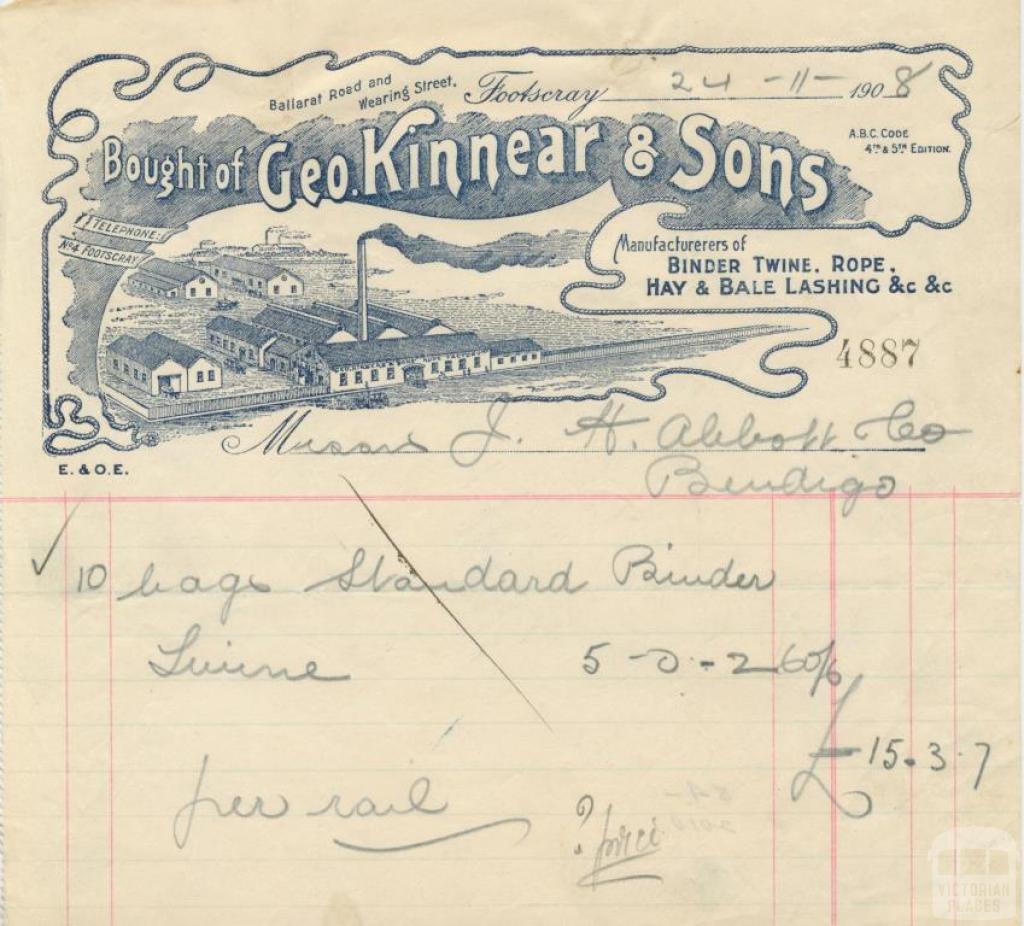 Ballarat Road and
Wearing Street.
Footscray 24-11-1908
Bought of Geo. Kinnear & Sons
A.B.C. CODE
4TH & 5TH EDITION.
TELEPHONE:
No 4 FOOTSCRAY
Manufacturerers of
BINDER TWINE, ROPE,
HAY & BALE LASHING &c &c
4887
Messrs J. H. Abbott & Co
Bendigo
E. & O.E.
✓ 10 bags Standard Binder
Twine 5-0-2 60/6
£15.3.7
per rail
? price
VICTORIAN
PLACES